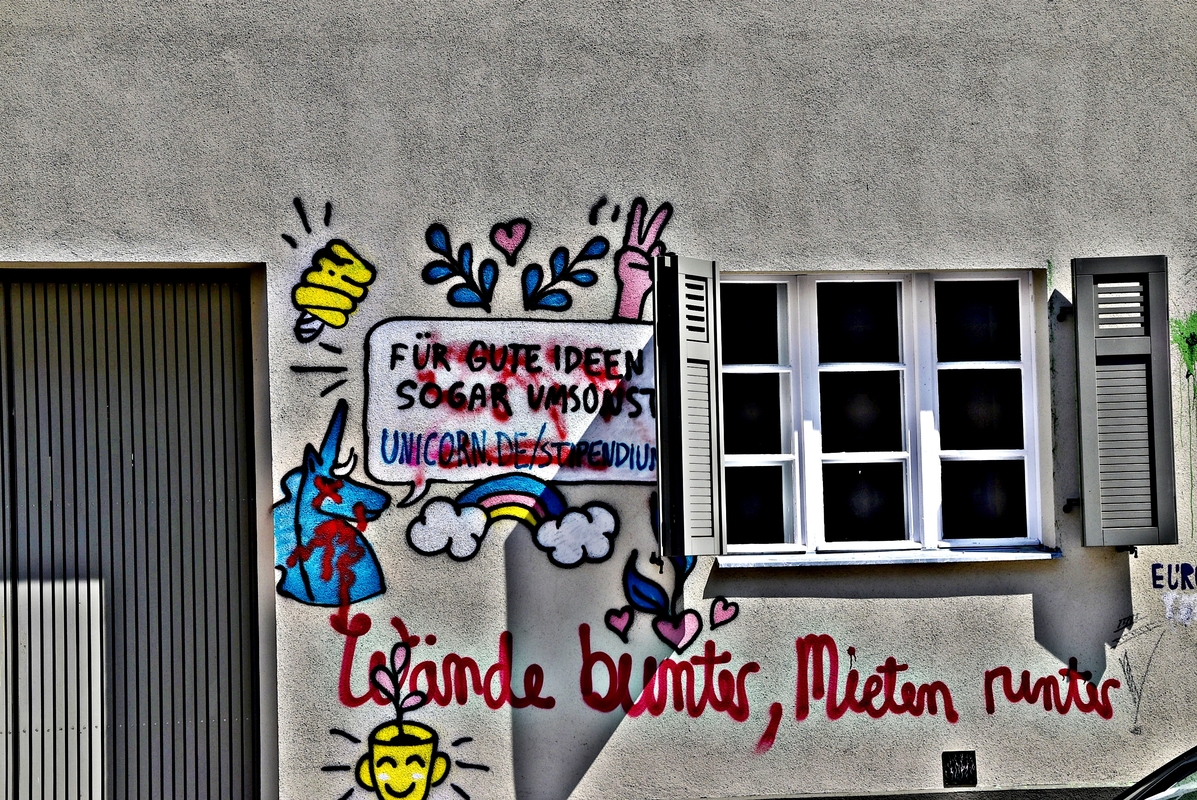 FÜR GUTE IDEEN
SOGAR UMSONST
UNICORN.DE/STIPENDIUM
Wände bunter, Mieten runter
EURO